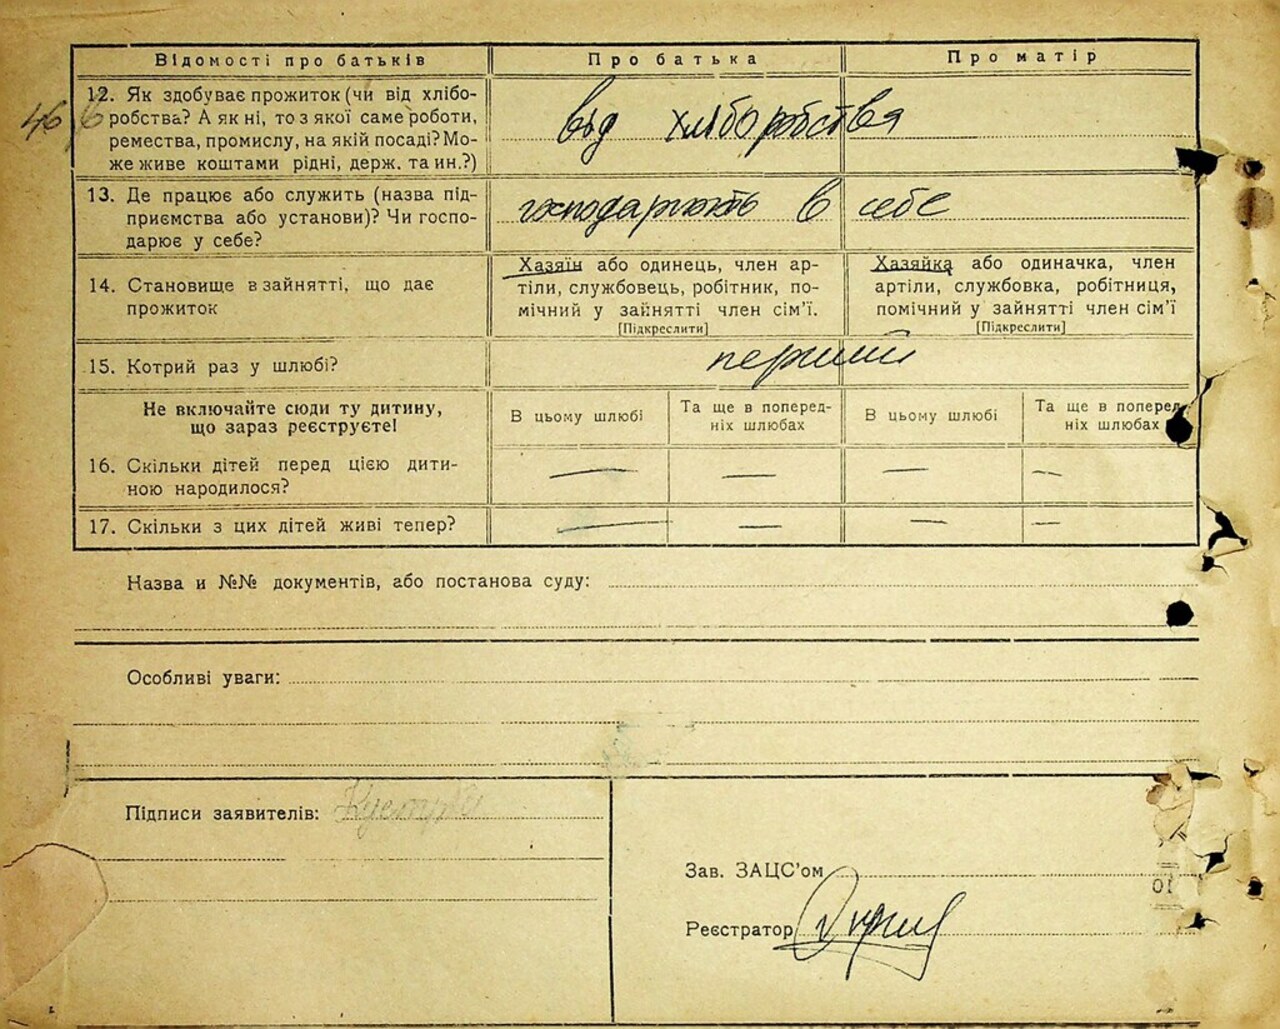 Відомості про батьків Про батька Про матір
46
12. Як здобуває прожиток (чи від хлібо-
робства? А як ні, то з якої саме роботи,
ремества, промислу, на якій посаді? Мо-
же живе коштами рідні, держ. та ин.?)
від хліборобства
13. Де працює або служить (назва під-
приємства або установи)? Чи госпо-
дарює у себе?
господарюють в себе
14. Становище в зайнятті, що дає
прожиток
Хазяїн або одинець, член ар-
тілі, службовець, робітник, по-
мічний у зайнятті член сім'ї.
[Підкреслити]
Хазяйка або одиначка, член
артіли, службовка, робітниця,
помічний у зайнятті член сім'ї
[Підкреслити]
15. Котрий раз у шлюбі?
перший
Не включайте сюди ту дитину,
що зараз реєструєте!
В цьому шлюбі
Та ще в поперед-
ніх шлюбах
В цьому шлюбі
Та ще в поперед-
ніх шлюбах
16. Скільки дітей перед цією дити-
ною народилося?
— — — —
17. Скільки з цих дітей живі тепер?
— — — —
Назва и №№ документів, або постанова суду:
Особливі уваги:
Підписи заявителів:
Зав. ЗАЦС'ом
Реєстратор